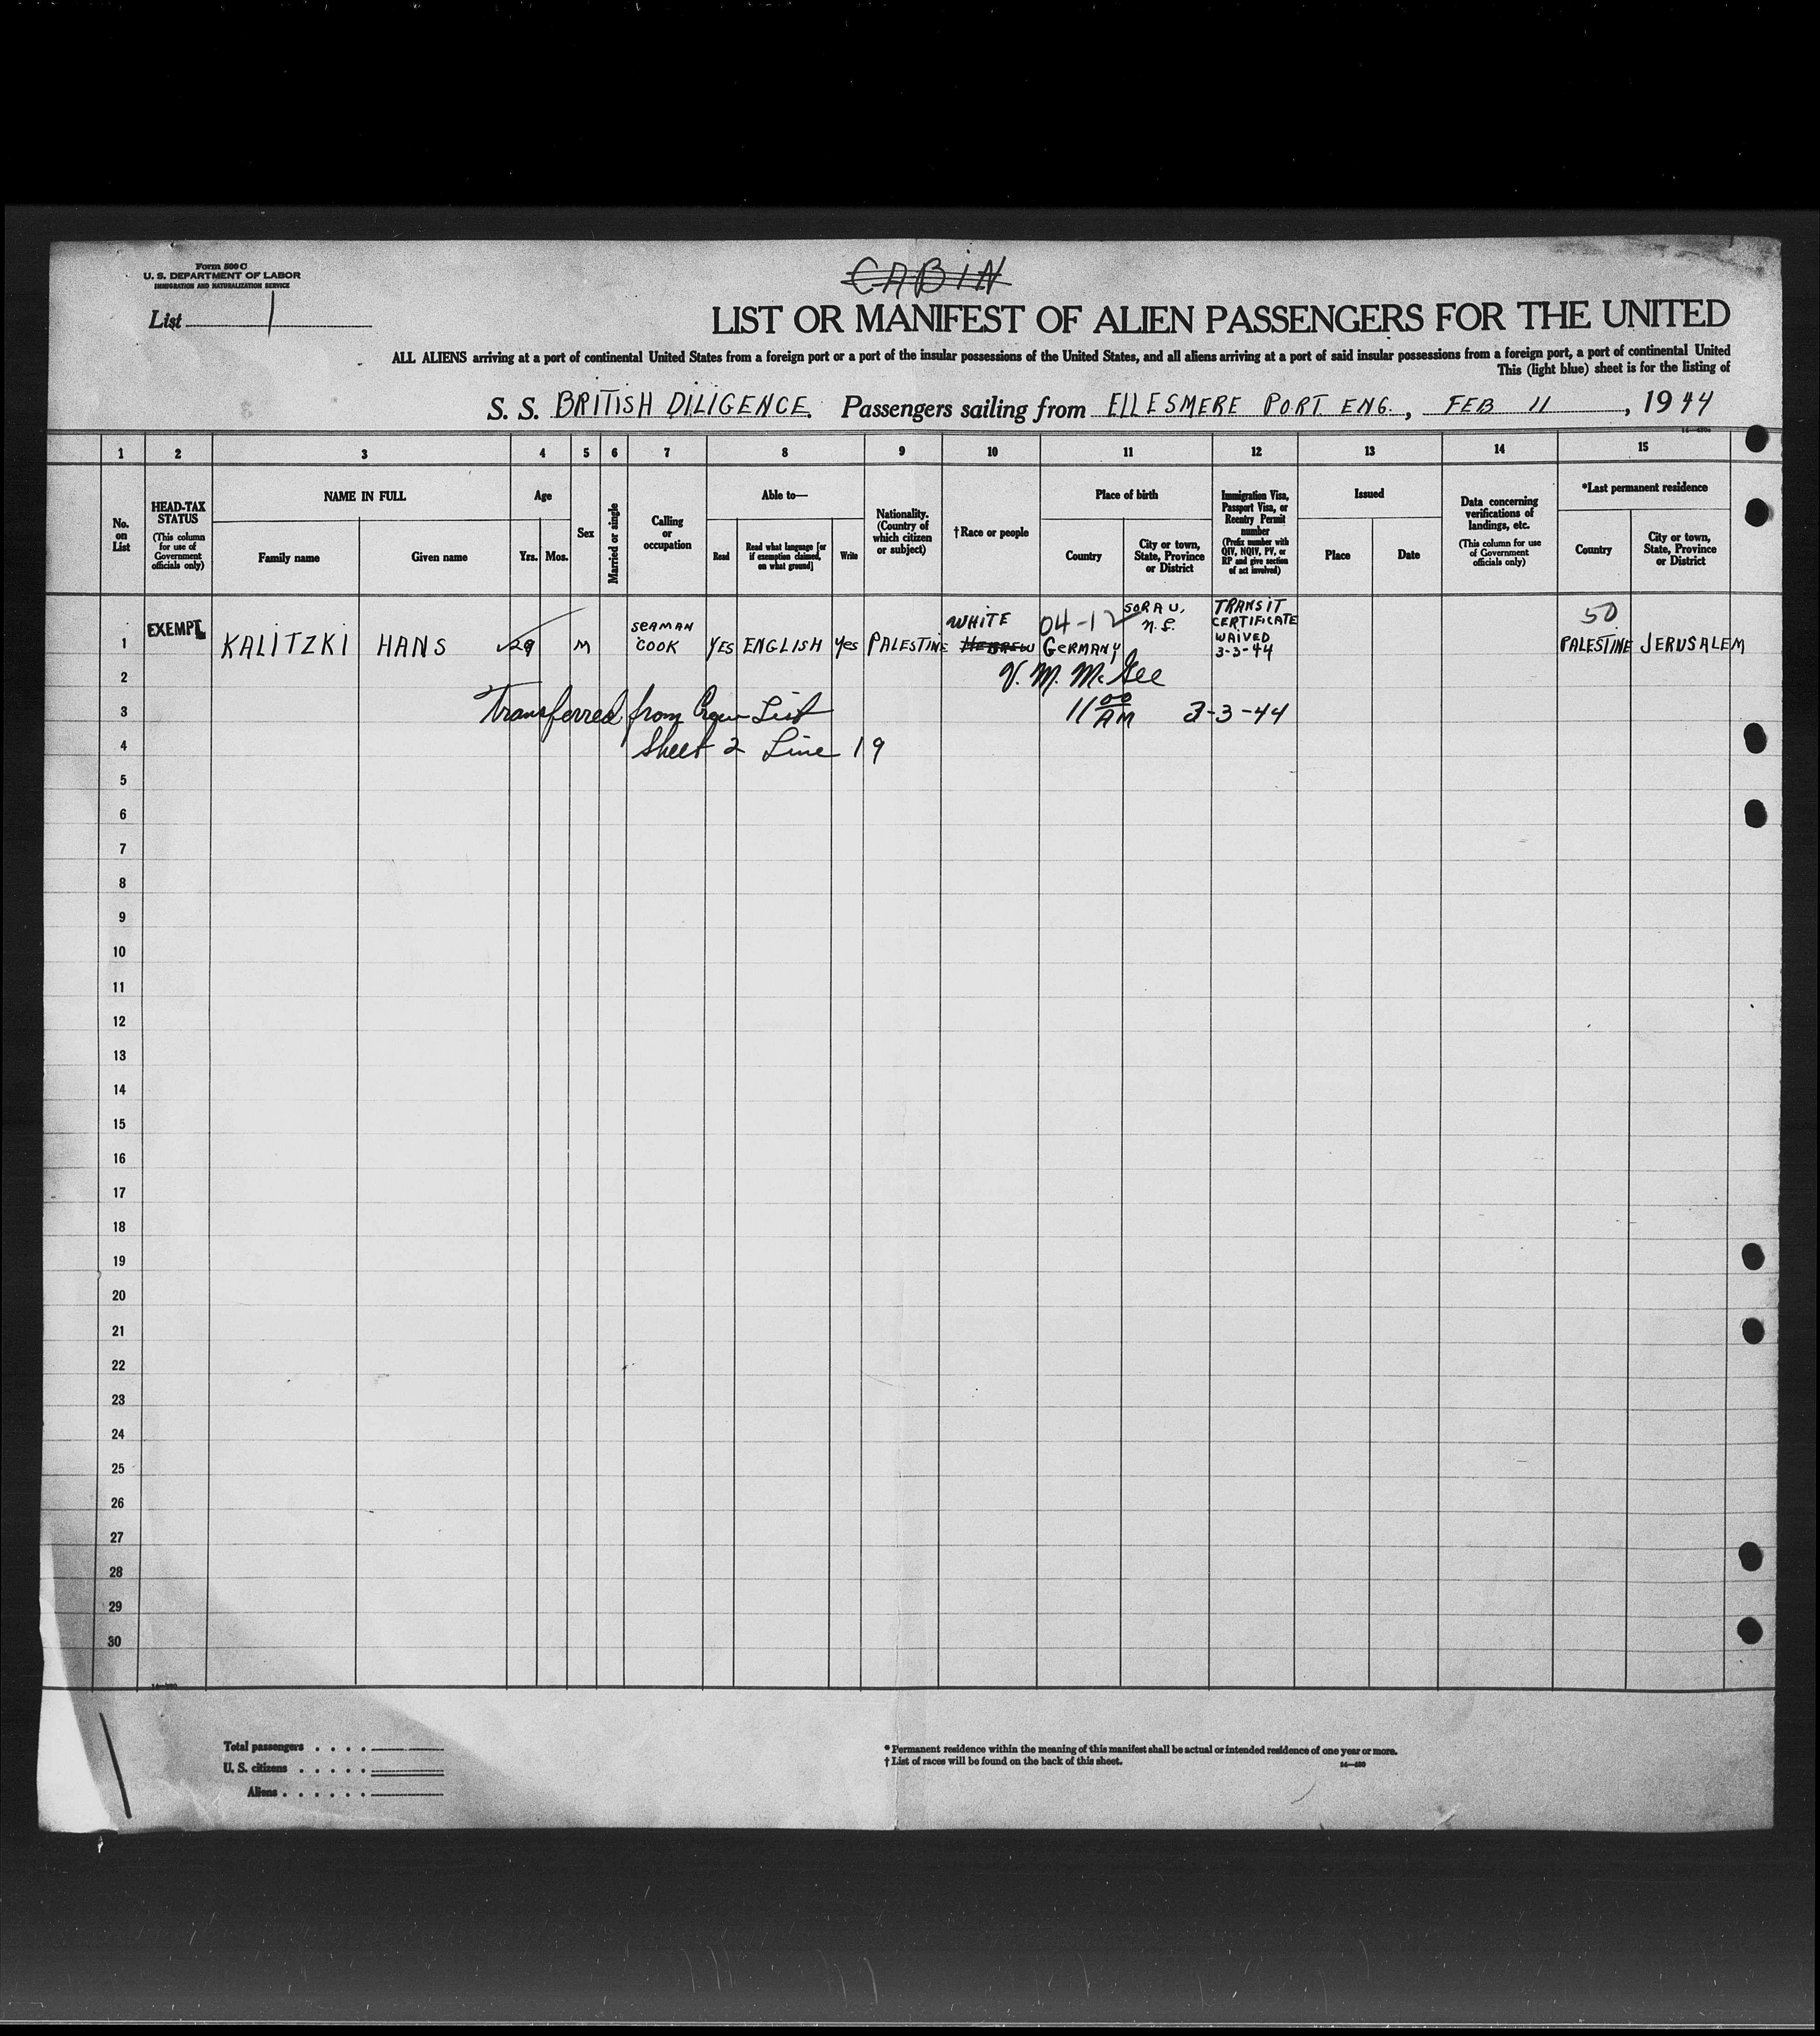 CABIN
Form 500 C
U. S. DEPARTMENT OF LABOR
IMMIGRATION AND NATURALIZATION SERVICE
List 1
LIST OR MANIFEST OF ALIEN PASSENGERS FOR THE UNITED
ALL ALIENS arriving at a port of continental United States from a foreign port or a port of the insular possessions of the United States, and all aliens arriving at a port of said insular possessions from a foreign port, a port of continental United
This (light blue) sheet is for the listing of
S. S. BRITISH DILIGENCE Passengers sailing from ELLESMERE PORT ENG., FEB 11, 1944
1 2 3 4 5 6 7 8 9 10 11 12 13 14 15
No. on List
HEAD-TAX STATUS
(This column for use of Government officials only)
NAME IN FULL
Family name
Given name
Age
Yrs. Mos.
Sex
Married or single
Calling or occupation
Able to—
Read
Read what language [or if exemption claimed, on what ground]
Write
Nationality. (Country of which citizen or subject)
†Race or people
Place of birth
Country
City or town, State, Province or District
Immigration Visa, Passport Visa, or Reentry Permit number
(Prefix number with QIV, NQIV, PV, or RP and give section of act involved)
Issued
Place
Date
Data concerning verifications of landings, etc.
(This column for use of Government officials only)
*Last permanent residence
Country
City or town, State, Province or District
1 EXEMPT KALITZKI HANS 29 M SEAMAN COOK YES ENGLISH Yes PALESTINE WHITE HEBREW 04-12 GERMANY SORAU, TRANSIT CERTIFICATE WAIVED 3-3-44 50 PALESTINE JERUSALEM
2 V. M. McGee
3 Transferred from Crew List 11 00 AM 3-3-44
4 Sheet 2 Line 19
5
6
7
8
9
10
11
12
13
14
15
16
17
18
19
20
21
22
23
24
25
26
27
28
29
30
Total passengers . . . .
U. S. citizens . . . . .
Aliens . . . . . .
* Permanent residence within the meaning of this manifest shall be actual or intended residence of one year or more.
† List of races will be found on the back of this sheet.